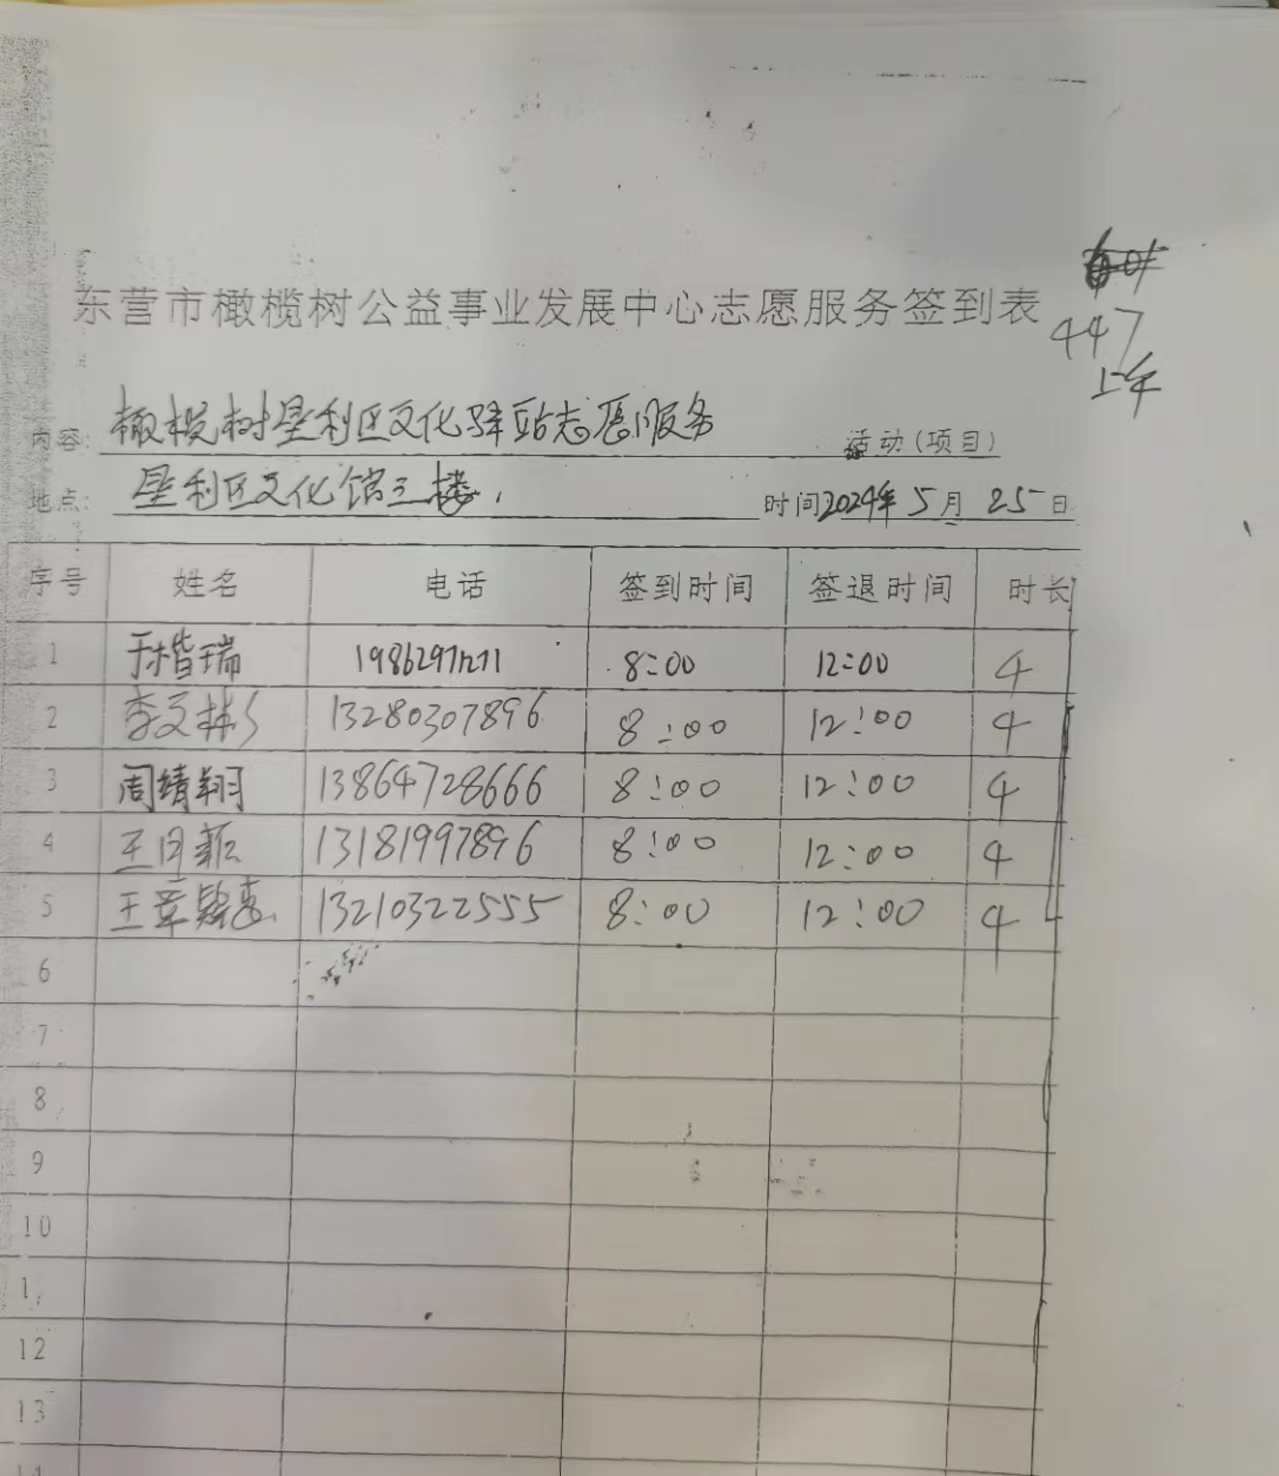 东营市橄榄树公益事业发展中心志愿服务签到表
447
上午
内容: 橄榄树垦利区文化驿站志愿服务 活动(项目)
地点: 垦利区文化馆三楼. 时间2024年5月25日
序号 姓名 电话 签到时间 签退时间 时长
1 于楷瑞 8:00 12:00 4
2 李文彬 13280307896 8:00 12:00 4
3 周靖翔 13864728666 8:00 12:00 4
4 王月 13181997896 8:00 12:00 4
5 王章 13210322555 8:00 12:00 4
6
7
8
9
10
1
12
13